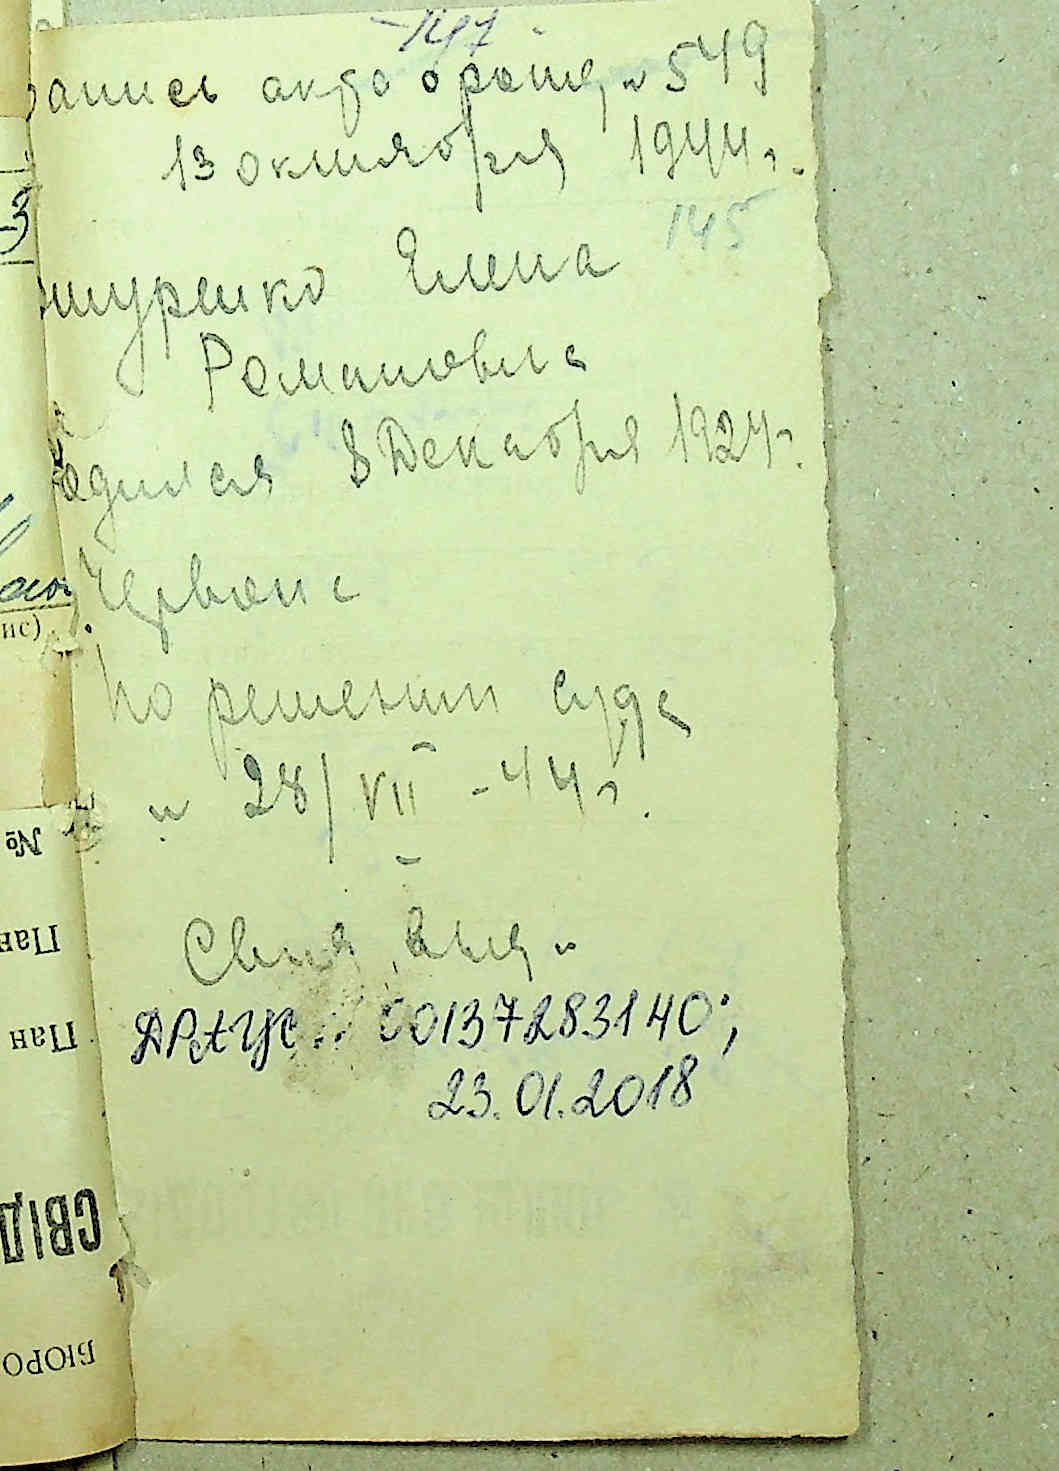 -147-
апись акта о рожд. № 549
13 октября 1944 г.
145
шуренко Елена
Романовна
одилася 8 Декабря 1924 г.
По решению суда
28/VII - 44 г.
ДРАЦС 00137283140;
23.01.2018
ис)
№
Пан
Пан
СВІД
БЮРО